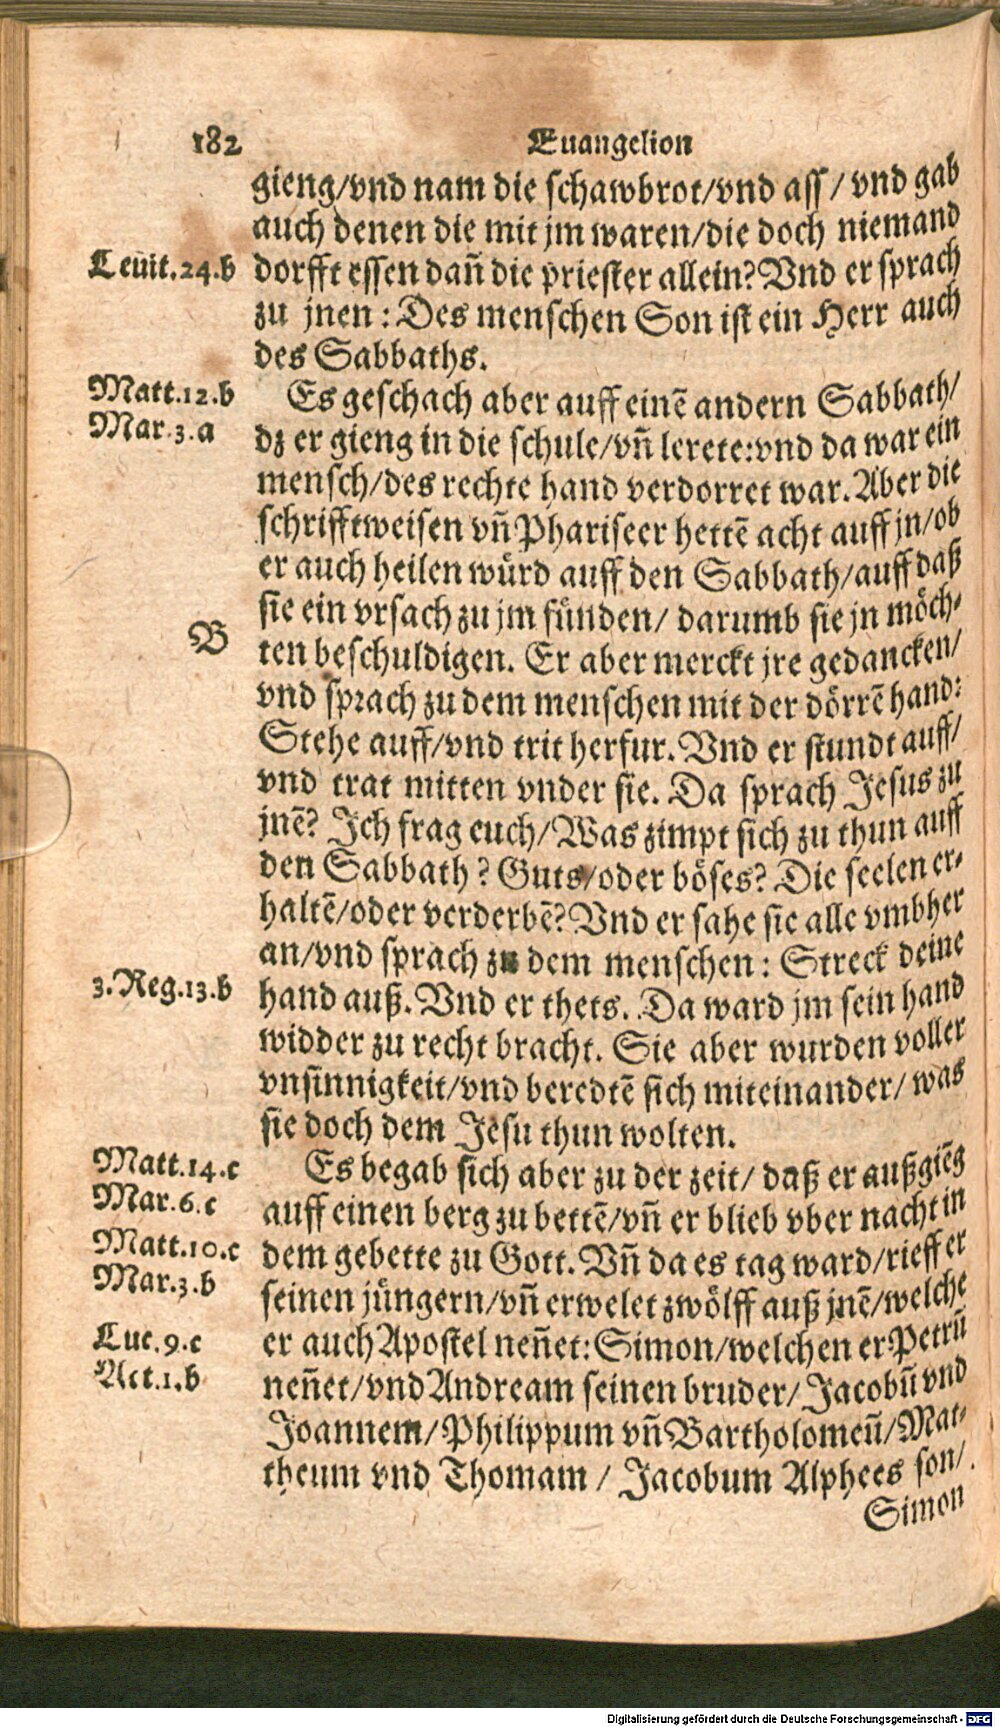 182 Euangelion
gieng/vnd nam die schawbrot/vnd ass/ vnd gab
auch denen die mit jm waren/die doch niemand
Leuit.24.b dorfft essen dañ die priester allein? Vnd er sprach
zu jnen: Des menschen Son ist ein Herr auch
des Sabbaths.
Matt.12.b Es geschach aber auff einē andern Sabbath/
Mar.3.a dz er gieng in die schule/vñ lerete: vnd da war ein
mensch/des rechte hand verdorret war. Aber die
schrifftweisen vñ Phariseer hettē acht auff jn/ob
er auch heilen würd auff den Sabbath/auff daß
sie ein vrsach zu jm fünden/ darumb sie jn möch-
B ten beschuldigen. Er aber merckt jre gedancken/
vnd sprach zu dem menschen mit der dörrē hand:
Stehe auff/vnd trit herfur. Vnd er stundt auff/
vnd trat mitten vnder sie. Da sprach Jesus zu
jnē? Ich frag euch/Was zimpt sich zu thun auff
den Sabbath? Guts/oder böses? Die seelen er-
haltē/oder verderbē? Vnd er sahe sie alle vmbher
an/vnd sprach zu dem menschen: Streck deine
3.Reg.13.b hand auß. Vnd er thets. Da ward jm sein hand
widder zu recht bracht. Sie aber wurden voller
vnsinnigkeit/vnd beredtē sich miteinander/ was
sie doch dem Jesu thun wolten.
Matt.14.c Es begab sich aber zu der zeit/ daß er außgiēg
Mar.6.c auff einen berg zu bettē/vñ er blieb vber nacht in
Matt.10.c dem gebette zu Gott. Vñ da es tag ward/rieff er
Mar.3.b seinen jüngern/vñ erwelet zwölff auß jnē/welche
Luc.9.c er auch Apostel neñet: Simon/welchen er Petrū
Act.1.b neñet/vnd Andream seinen bruder/ Jacobū vnd
Joannem/Philippum vñ Bartholomeū/Mat-
theum vnd Thomam / Jacobum Alphees son/
Simon
Digitalisierung gefördert durch die Deutsche Forschungsgemeinschaft - DFG